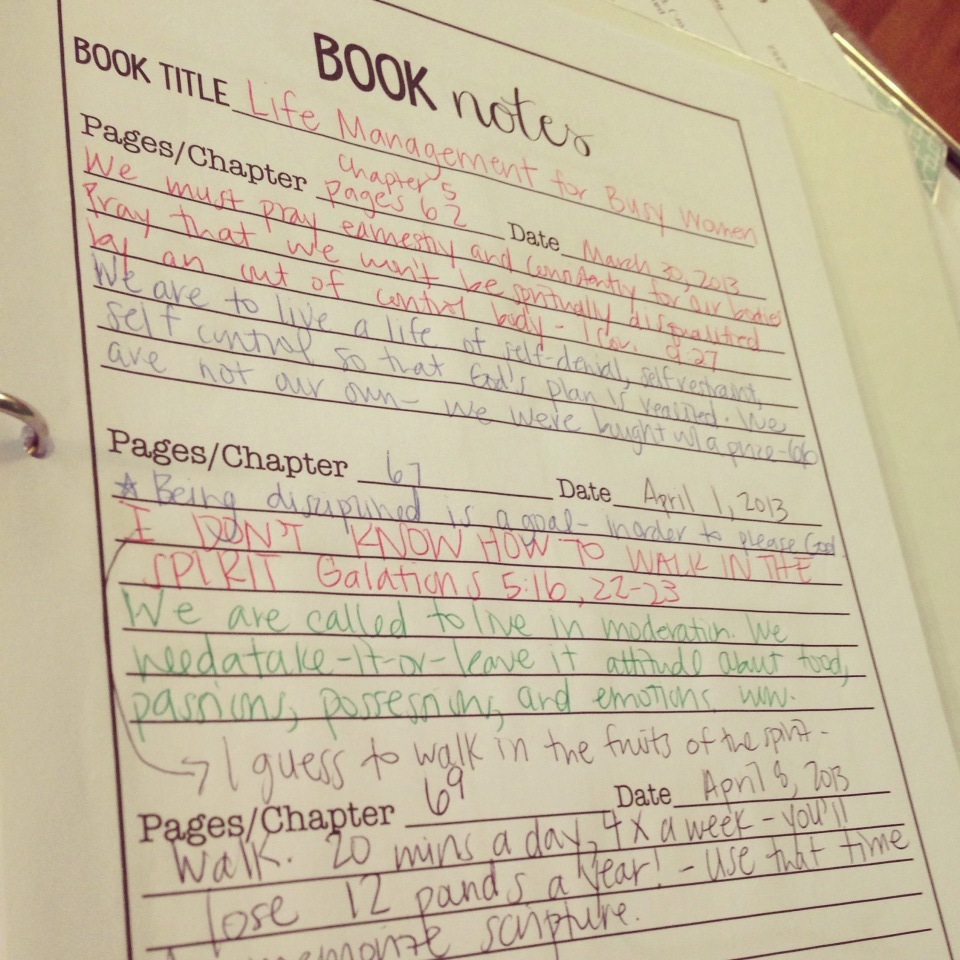 BOOK notes
BOOK TITLE Life Management for Busy Women
Chapter 5
Pages/Chapter Pages 62 Date March 30, 2013
We must pray earnestly and consistently for our bodies
Pray that we won't be spiritually disqualified
by an out of control body - 1 Cor. 9:27
We are to live a life of self-denial, self restraint,
self control so that God's plan is realized. We
are not our own - we were bought w/ a price - 66
Pages/Chapter 67 Date April 1, 2013
☆ Being disciplined is a goal - inorder to please God
I DON'T KNOW HOW TO WALK IN THE
SPIRIT Galations 5:16, 22-23
We are called to live in moderation. We
need a take-it-or-leave it attitude about food,
passions, possessions, and emotions.
→ I guess to walk in the fruits of the spirit -
Pages/Chapter 69 Date April 8, 2013
Walk. 20 mins a day, 4x a week - you'll
lose 12 pounds a year! - use that time
memorize scripture.